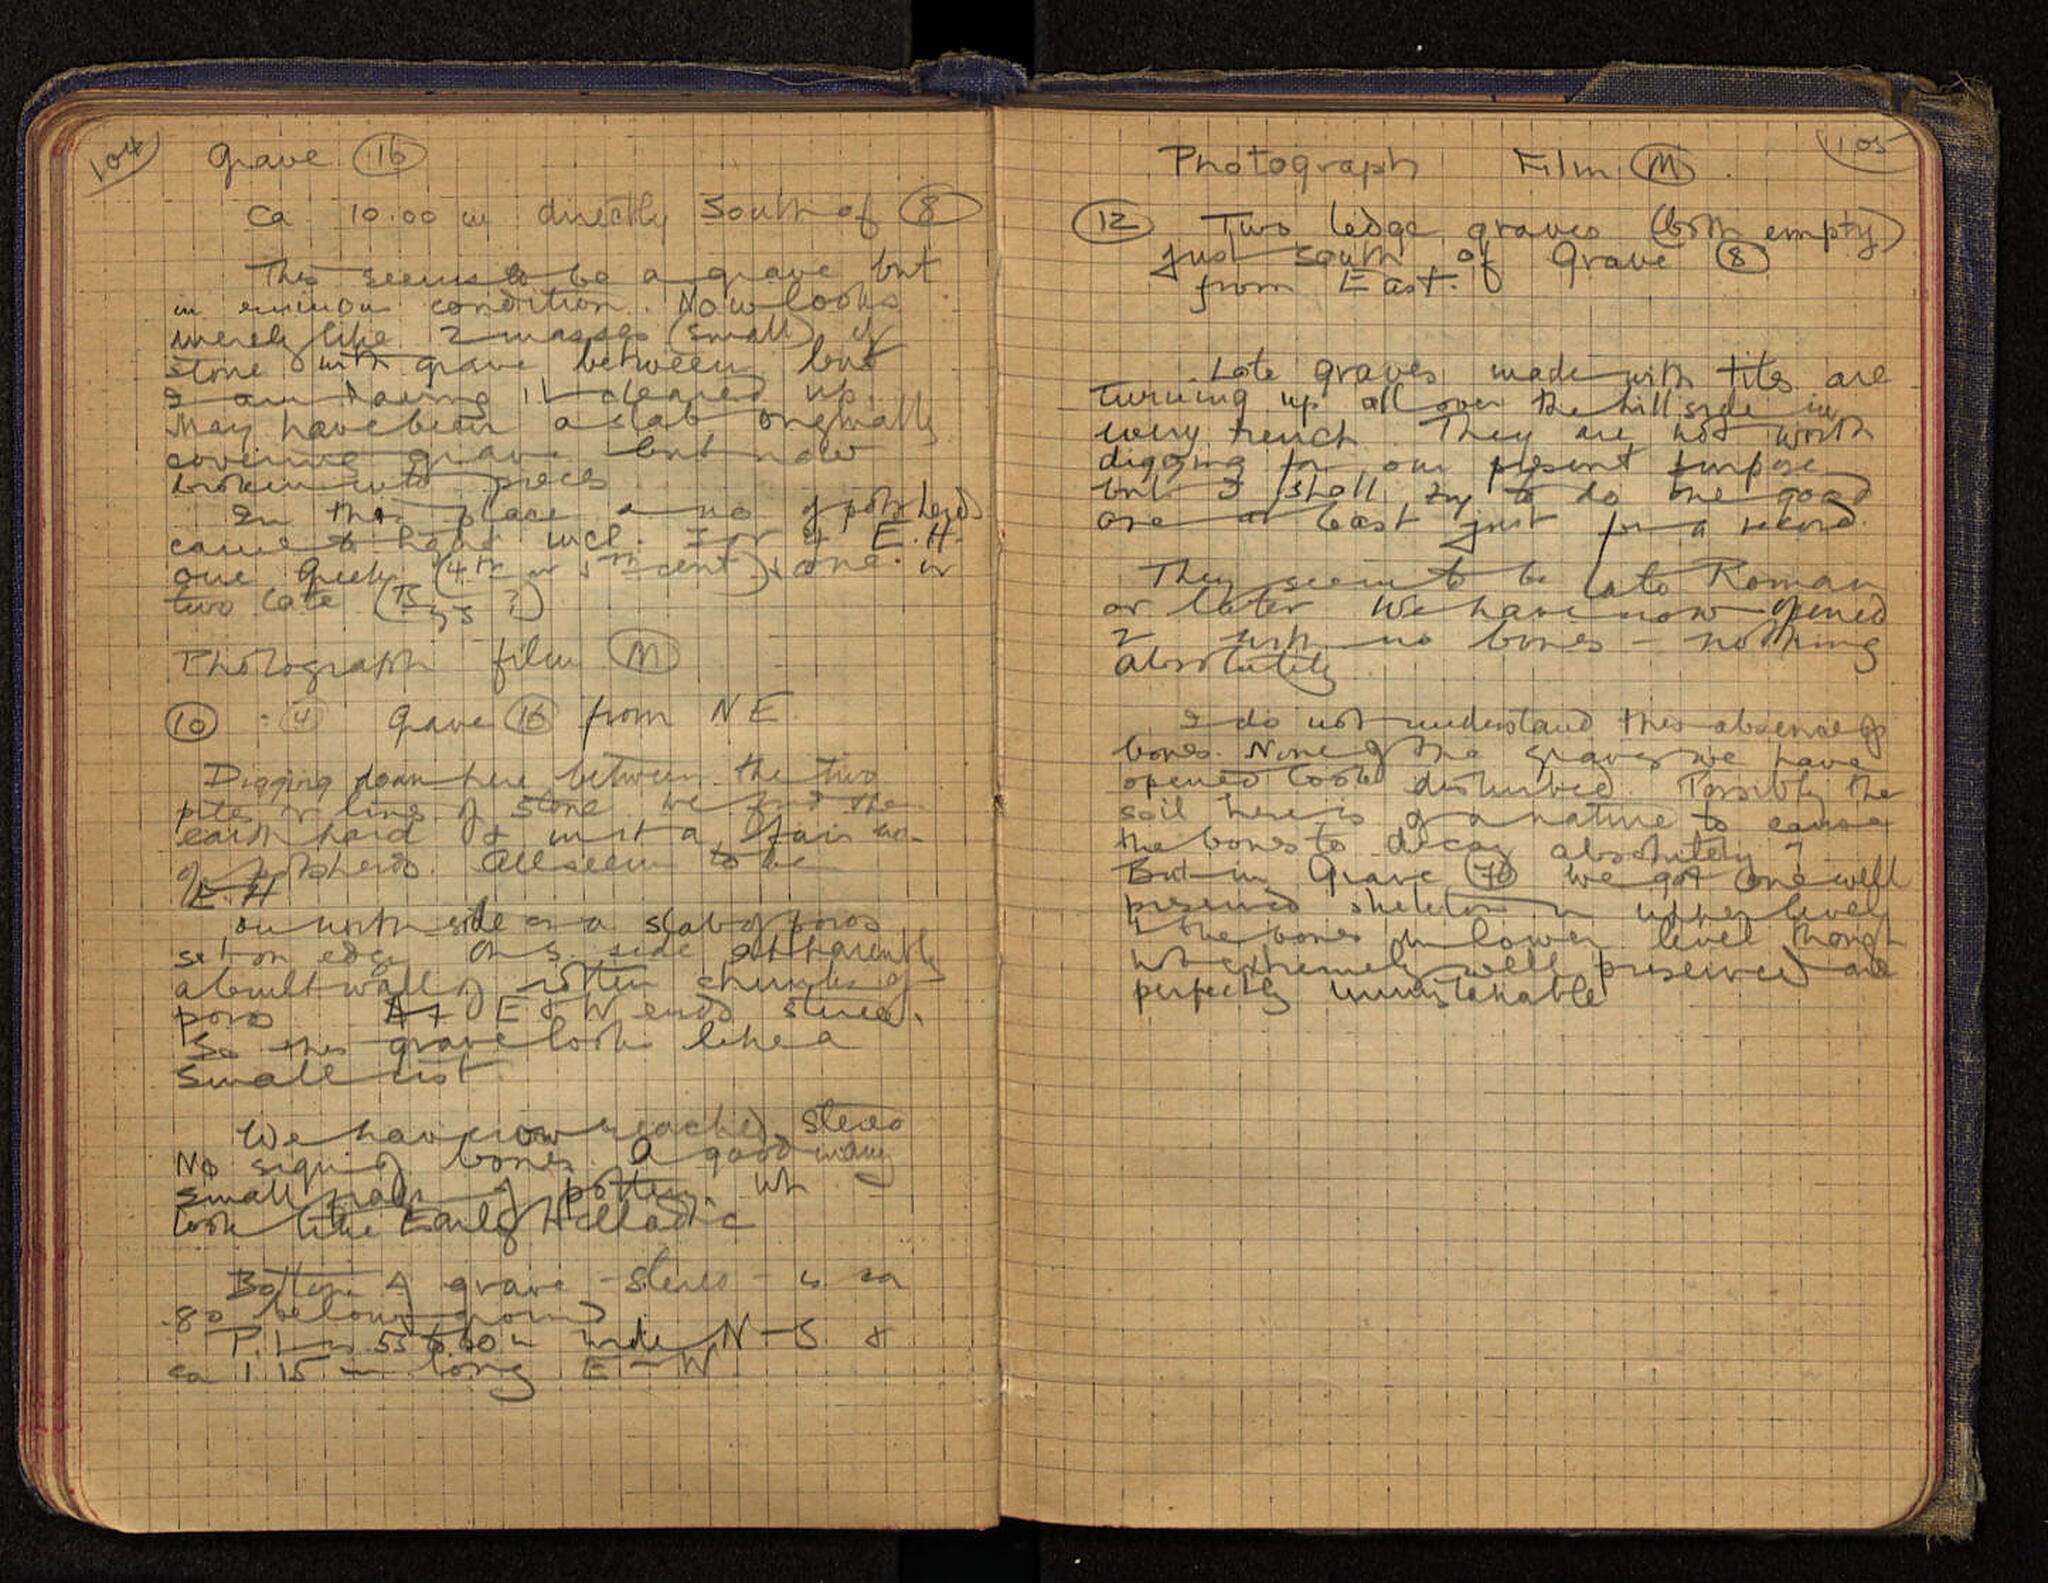 104
Grave 16
ca 10.00 m directly South of 8
This seems to be a grave but
in condition. Now looks
merely like 2 masses (small) of
stone with grave between but
I am having it cleared up.
May have been a slab originally
covering grave but now
broken into pieces
In this place a no of potsherds
came to light incl. 3 or 4 E.H.
one Greek (4th or 5th cent) & one or
two late (Byz?)
Photograph film M
10 4 Grave 16 from NE
Digging down here between the two
piles or lines of stone we find the
earth hard & in it a fair no.
of potsherds. All seem to be
E.H
On north side is a slab of poros
set on edge. On S. side apparently
a built wall of rotten chunks of
poros At E & W ends stereo.
So this grave looks like a
small cist.
We have now reached stereo
No sign of bones. A good many
small frags of pottery wh
look like Early Helladic
Bottom of grave - stereo - is ca
.80 below ground
It is .55 to .60 m wide N-S &
ca 1.15 m long E-W
105
Photograph Film M.
12 Two ledge graves (both empty)
just south of Grave 8
from East.
Late graves made with tiles are
turning up all over the hillside in
every trench. They are not worth
digging for our present purpose
but I shall try to do one good
one at least just for a record.
They seem to be late Roman
or later We have now opened
2 with no bones - nothing
absolutely
I do not understand this absence of
bones. None of the graves we have
opened look disturbed. Possibly the
soil here is of a nature to cause
the bones to decay absolutely?
But in Grave we got one well
preserved skeleton in upper level
& the bones in lower level though
not extremely well preserved are
perfectly unmistakable